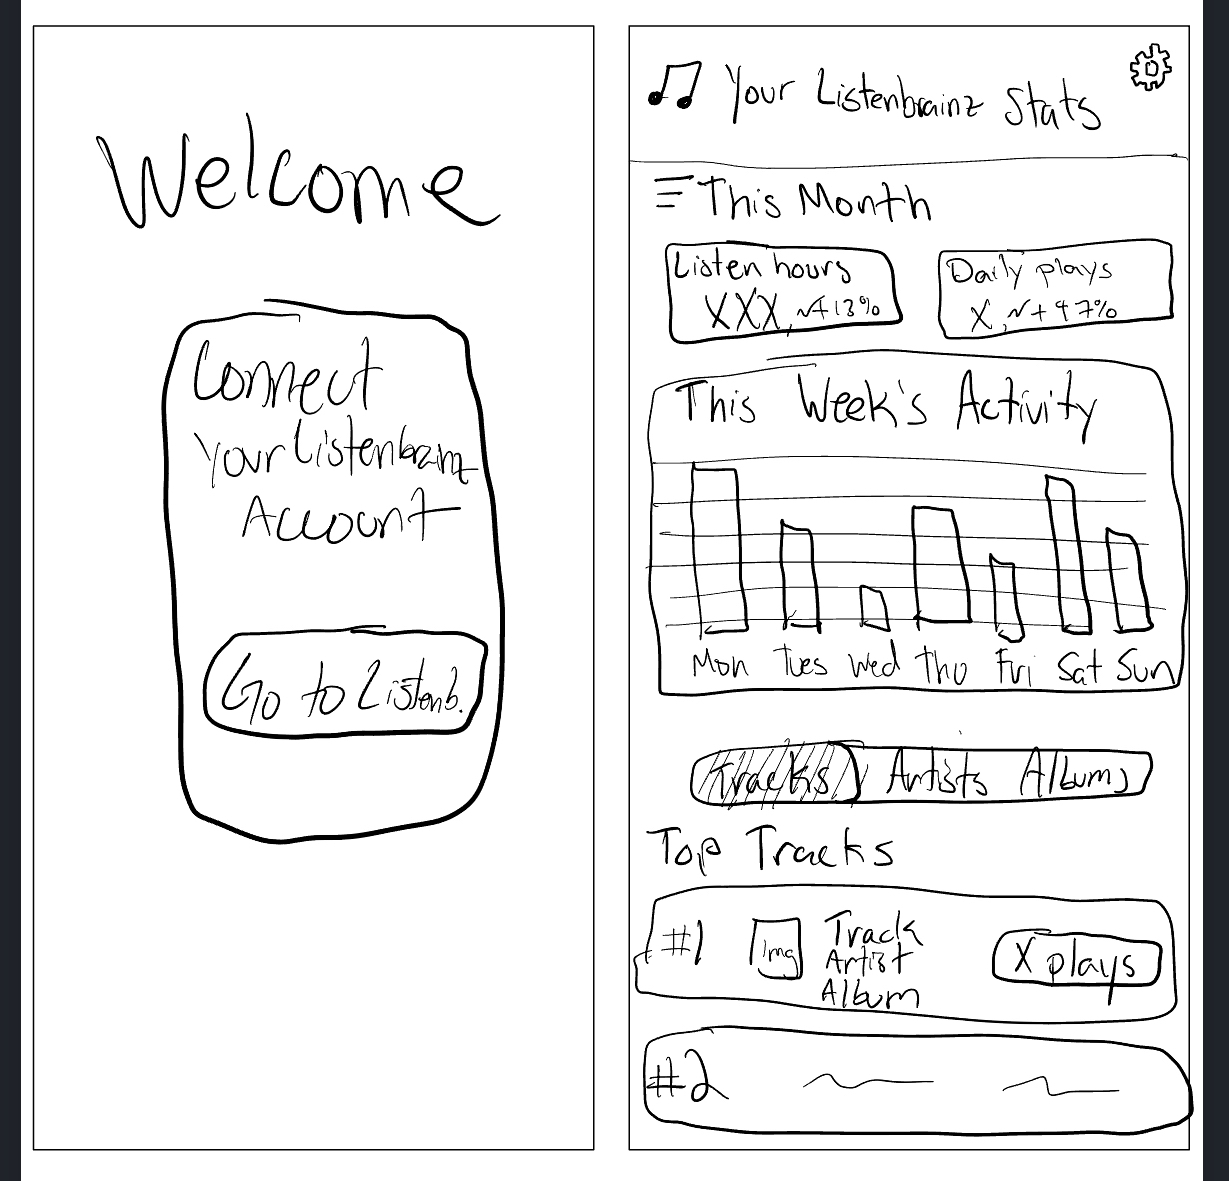 Welcome
Connect
Your Listenbrainz
Account
Go to Listenb.
Your Listenbrainz Stats
This Month
Listen hours
XXX, +13%
Daily plays
X, +47%
This Week's Activity
Mon Tues Wed Thu Fri Sat Sun
Tracks Artists Albums
Top Tracks
#1
Img
Track
Artist
Album
X plays
#2